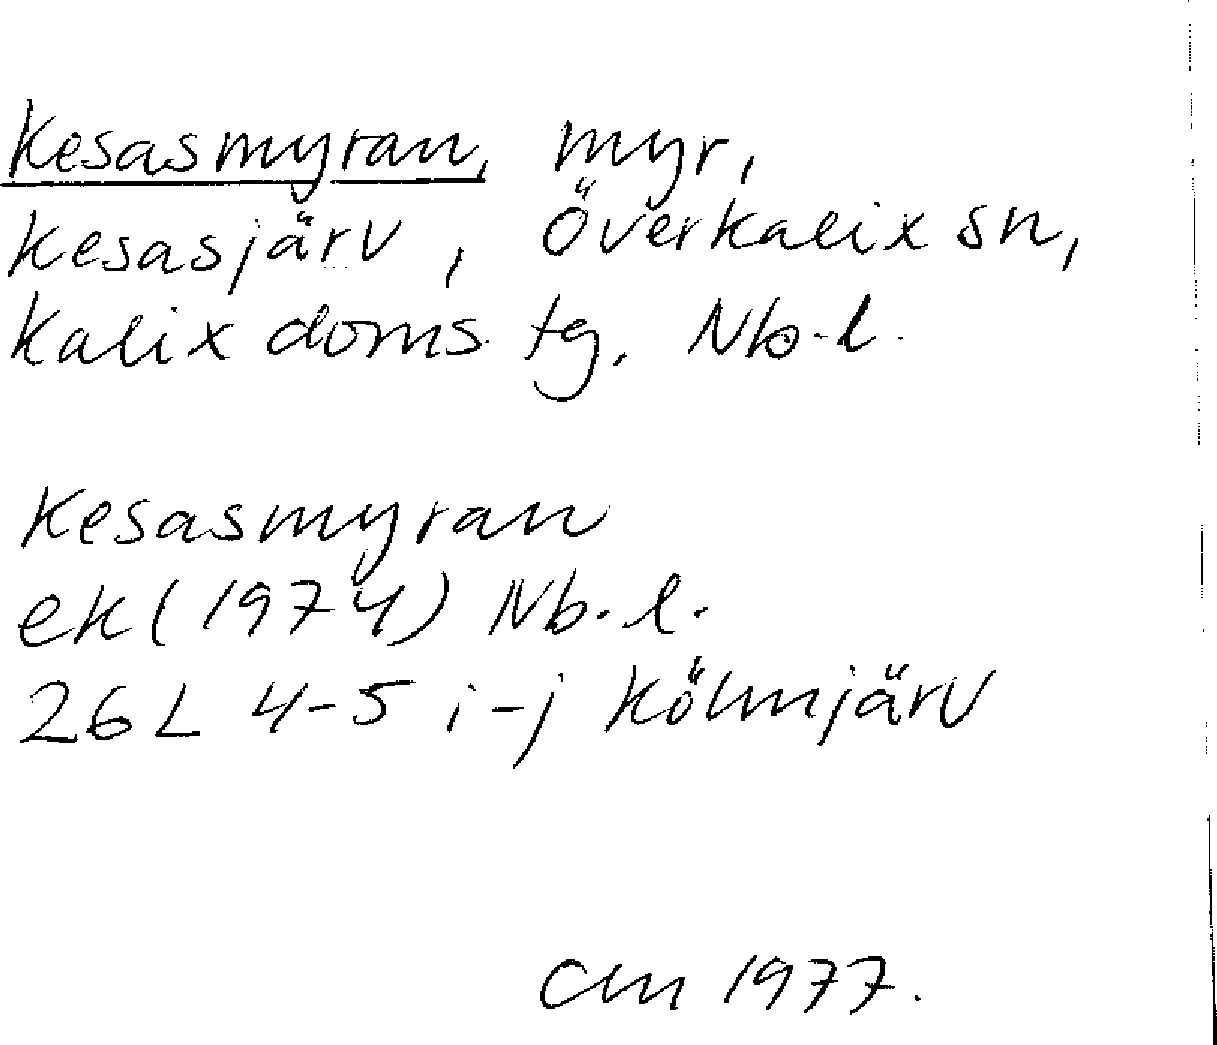 Kesasmyran, myr,
Kesasjärv, Överkalix sn,
Kalix doms. tg. Nb. l.
Kesasmyran
ek (1974) Nb. l.
26L 4-5 i-j Kölmjärv
CM 1977.